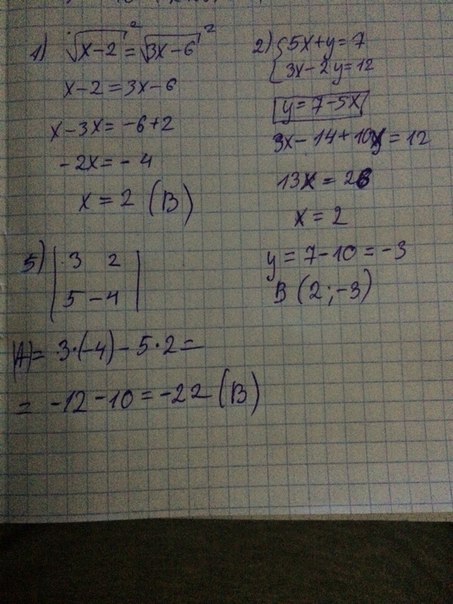 1) √x-2² = √3x-6²
x-2=3x-6
x-3x=-6+2
-2x=-4
x=2 (B)
2) {5x+y=7
3x-2y=12
y=7-5x
3x-14+10x=12
13x=26
x=2
y=7-10=-3
B (2;-3)
5) |3 2|
|5 -4|
|A|= 3·(-4)-5·2=
= -12-10=-22 (B)